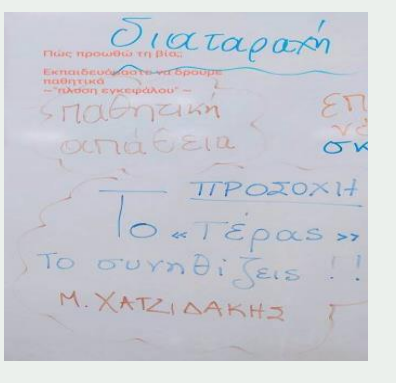 διαταραχή
Πώς προωθώ τη βία;
Εκπαιδευόμαστε να δρούμε
παθητικά
–"πλύση εγκεφάλου" –
παθητική
απάθεια
επ
να
σκ
ΠΡΟΣΟΧΗ
Το «Τέρας»
το συνηθίζεις !!
Μ. ΧΑΤΖΙΔΑΚΗΣ